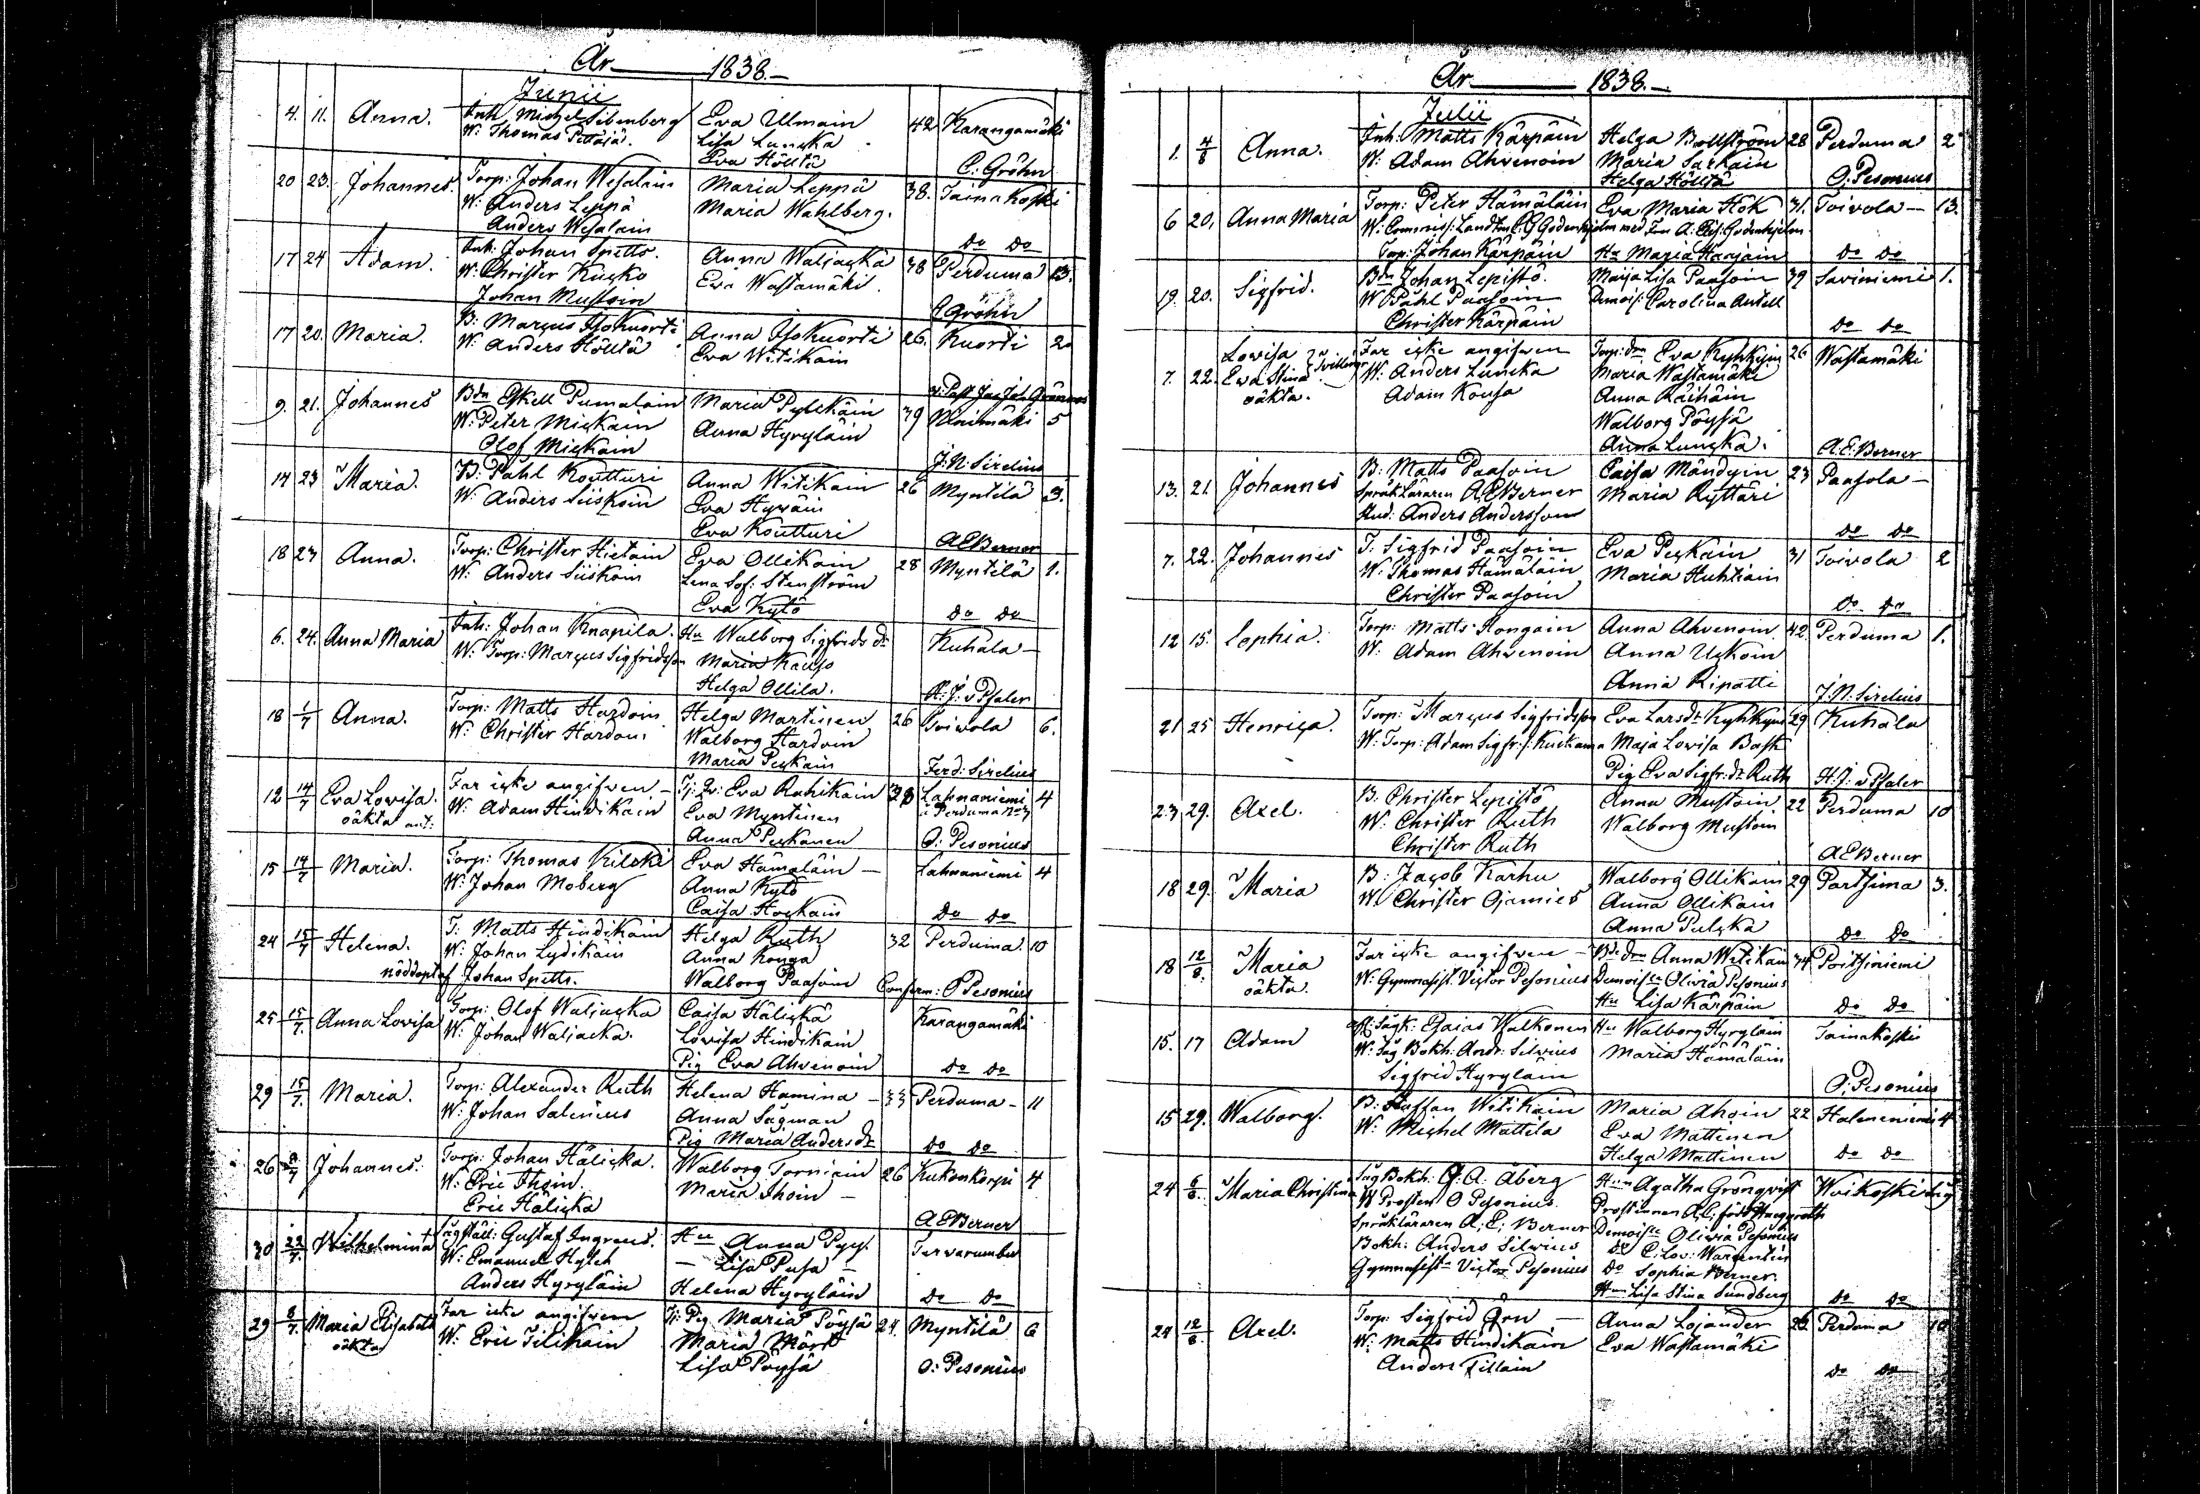 År 1838.
Junii
4. 11. Anna. Inh. Michel Silenberg Eva Ulmain 42 Karangamäki
W: Thomas Pettäjä. Lisa Luncka
Eva Hölttä C: Gröhn
20 23. Johannes. Torp: Johan Wesalain Maria Leppä 38. Tainakoski
W: Anders Leppä Maria Wahlberg.
Anders Wesalain Do Do
17 24 Adam. Inh: Johan Spetts. Anna Waljacka 38 Perduma 13.
W: Christer Kucko Eva Wastamäki.
Johan Mustoin C Gröhn
17 20. Maria. B: Marcus Isokuorti Anna Isokuorti 26. Kuorti 2
W: Anders Hölttä Eva Witikain
9. 21. Johannes Bdn Eskell Pumalain Maria Pylckäin 39 Niinimäki 5
W: Peter Mickain Anna Hyryläin
Olof Mickain J: N: Sirelius
14 23 Maria. B. Påhl Koutturi Anna Witikain 26 Myntilä 3.
W: Anders Siiskoin Eva Hyväin
Eva Koutturi A E Berner
18 23 Anna. Torp: Christer Hietain Eva Ollikain 28 Myntilä 1.
W: Anders Siiskoin Lena Sof: Stenström
Eva Kytö Do Do
6. 24. Anna Maria Inh: Johan Knapila. Hu Walborg Sigfrids dr Kuhala
W: Torp: Marcus Sigfridsson Maria Kauso
Helga Ollila. H: J: v Pfaler
18 1/7 Anna. Torp: Matts Hardoin Helga Martinen 26 Toivola 6.
W: Christer Hardoin Walborg Hardoin
Maria Peckain Ferd: Sirelius
12 14/7 Eva Lovisa. Far icke angifven Tj: Qv: Eva Rahikain 38 Lahnaniemi 4
oäkta W: Adam Hindikain Eva Myntinen Perduma
Anna Peckanen O: Pesonius
15 14/7 Maria. Torp: Thomas Kilski Eva Hämäläin Lahnaniemi 4
W: Johan Moberg Anna Kytö
Caisa Hockain Do Do
24 15/7 Helena. T: Matts Hindikain Helga Ruth 32 Perduma. 10
W: Johan Lydikäin Anna Konga
nöddopt af Johan Spetts. Walborg Paasoin Confirm: O Pesonius
25 15/7. Anna Lovisa Torp: Olof Waljacka Caisa Hälickä Karangamäki
W: Johan Waljacka. Lovisa Hindikain
Pig Eva Ahvenoin Do Do
29 15/7. Maria. Torp: Alexander Ruth Helena Hamina 33 Perduma 11
W: Johan Salenius Anna Sågman
Pig Maria Anders dr Do Do
26 8/7 Johannes. Torp: Johan Hälicka. Walborg Torniain 26 Kukonkorpi 4
W: Eric Ihoin. Maria Ihoin
Eric Hälicka A E Berner
30 22/7. Wilhelmina Gustaf Ingreus. Hu Anna Pyy.
W: Emanuel Lisa Pusa
Anders Hyryläin Helena Hyryläin Do Do
29 8/7. Maria Elisabeth Far icke angifven Tj: Pig Maria Pöysä 24. Myntilä 6
oäkta W: Eric Tilikain Maria Mört
Lisa Pöysä O: Pesonius
År 1838.
Julii
1. 4/8 Anna. Inh: Matts Kärpäin Helga Bollström 28 Perduma 2
W: Adam Ahvenoin Maria Sarkain
Helga Hölttä O: Pesonius
6 20. Anna Maria Torp: Peter Hämäläin Eva Maria Hök 31. Toivola 13.
W: Commiss: Landtm C. G Godenhjelm med Fru A: Godenhjelm
Torp: Johan Kärpäin Hu Maria Harjain Do Do
19. 20. Sigfrid. Bdn Johan Lepistö. Maija Lisa Paasoin 39 Saviniemi 1.
W Påhl Paasoin Demois: Carolina Antell
Christer Kärpäin Do Do
7. 22. Lovisa Far icke angifven Torp: drn Eva Kyhkyin 26 Wastamäki
Eva Stina Tvillingar W: Anders Luncka Maria Wastamäki
oäkta. Adam Kousa Anna Räihäin
Walborg Pöysä
Anna Luncka. A. E: Berner
13. 21. Johannes B: Matts Paasoin Caisa Mändyin 23 Paasola
Språkläraren A. E Berner Maria Ryttäri
Stud: Anders Andersson Do Do
7. 22. Johannes T: Sigfrid Paasoin Eva Peckain 31 Toivola 2
W: Thomas Hämäläin Maria Huhtiain
Christer Paasoin Do Do
12 15. Sophia. Torp: Matts Hongain Anna Ahvenoin 42. Perduma 1.
W: Adam Ahvenoin Anna Uckoin
Anna Ripatti J: N: Sirelius
21 25 Henrica. Torp: Marcus Sigfridsson Eva Larsdr Kyhkyin 29 Kuhala
W: Torp: Adam Sigfr: s: Kuckama Maja Lovisa Bask
Pig Eva Sigfr: dr Ruth H: J: v Pfaler
23. 29. Axel. B. Christer Lepistö Anna Mustoin 22 Perduma 10
W: Christer Ruth Walborg Mustoin
Christer Ruth A E Berner
18 29. Maria B: Jacob Karhu Walborg Ollikain 29 Partsima 3.
W. Christer Ojamies Anna Ollikain
Anna Pulcka Do Do
18 12/8. Maria Far icke angifven Bde drn Anna Witikain 34 Poitsiniemi
oäkta. W: Gymnasist. Victor Pesonius Demoislle Olivia Pesonius
Hu Lisa Kärpäin Do Do
15. 17 Adam Esaias Walkonen Hu Walborg Hyryläin Tainakoski
W: Såg Bokh: Andr: Silvius Maria Hämäläin
Sigfrid Hyryläin O: Pesonius
15 29. Walborg. B: Staffan Witikain Maria Ahoin 22 Halmeniemi 4
W: Michel Mattila Eva Mattinen
Helga Mattinen Do Do
24 5/8. Maria Christina Såg Bokh: Q: A: Åberg Hu Agatha Gröngvist Woikoski Såg
W Prosten O Pesonius. Prostinnan A. C. född Haeggroth
Språkläraren A: E: Berner Demoislle Olivia Pesonius
Bokh: Anders Silvius Do C: Lov: Wargentin
Gymnasist Victor Pesonius Do Sophia Berner.
Hu Lisa Stina Sundberg Do Do
24 12/8. Axel. Torp: Sigfrid Örn Anna Lojander 26 Perduma 10
W: Matts Hindikain Eva Wastamäki
Anders Tillain Do Do